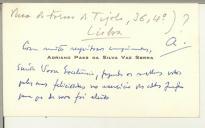 Rua do Forno do Tijolo, 36, 4º) ?
Lisboa
A.
Com muitos respeitosos cumprimentos,
ADRIANO PAES DA SILVA VAZ SERRA
Saúda Vossa Excelência, fazendo os melhores votos
pelas suas felicidades, no exercício das altas funções
para que de novo foi eleito